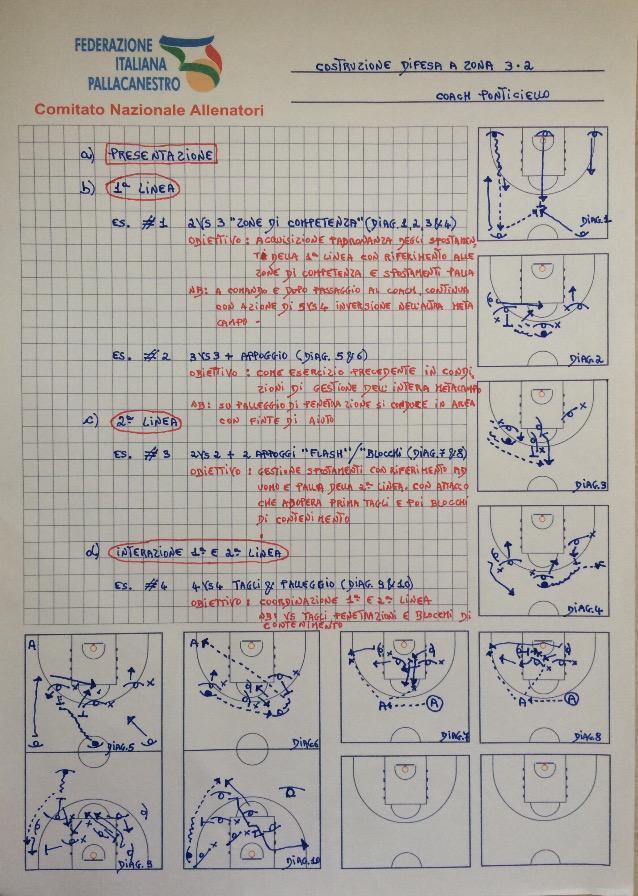 FEDERAZIONE
ITALIANA
PALLACANESTRO
Comitato Nazionale Allenatori
COSTRUZIONE DIFESA A ZONA 3-2
COACH PONTICIELLO
a) PRESENTAZIONE
b) 1ª LINEA
ES. #1 2VS3 "ZONE DI COMPETENZA" (DIAG. 1, 2, 3 & 4)
OBIETTIVO: ACQUISIZIONE PADRONANZA DEGLI SPOSTAMEN_
TI DELLA 1ª LINEA CON RIFERIMENTO ALLE
ZONE DI COMPETENZA E SPOSTAMENTI PALLA
NB: A COMANDO E DOPO PASSAGGIO AL COACH, CONTINUA
CON AZIONE DI 5VS4 INVERSIONE NELL'ALTRA META
CAMPO -
ES. #2 3VS3 + APPOGGIO (DIAG. 5 & 6)
OBIETTIVO: COME ESERCIZIO PRECEDENTE IN CONDI_
ZIONI DI GESTIONE DELL'INTERA METACAMPO
NB: SU PALLEGGIO DI PENETRAZIONE SI CONDUCE IN AREA
CON FINTE DI AIUTO
c) 2ª LINEA
ES. #3 2VS2 + 2 APPOGGI "FLASH"/"BLOCCHI (DIAG. 7 & 8)
OBIETTIVO: GESTIONE SPOSTAMENTI CON RIFERIMENTO AD
UOMO E PALLA DELLA 2ª LINEA. CON ATTACCO
CHE ADOPERA PRIMA TAGLI E POI BLOCCHI
DI CONTENIMENTO
d) INTERAZIONE 1ª E 2ª LINEA
ES. #4 4VS4 TAGLI & PALLEGGIO (DIAG. 9 & 10)
OBIETTIVO: COORDINAZIONE 1ª E 2ª LINEA
NB: VS TAGLI PENETRAZIONI E BLOCCHI DI
CONTENIMENTO
DIAG. 1
DIAG. 2
DIAG. 3
DIAG. 4
A
DIAG. 5
A
DIAG. 6
A A
DIAG. 7
A A
DIAG. 8
DIAG. 9
DIAG. 10